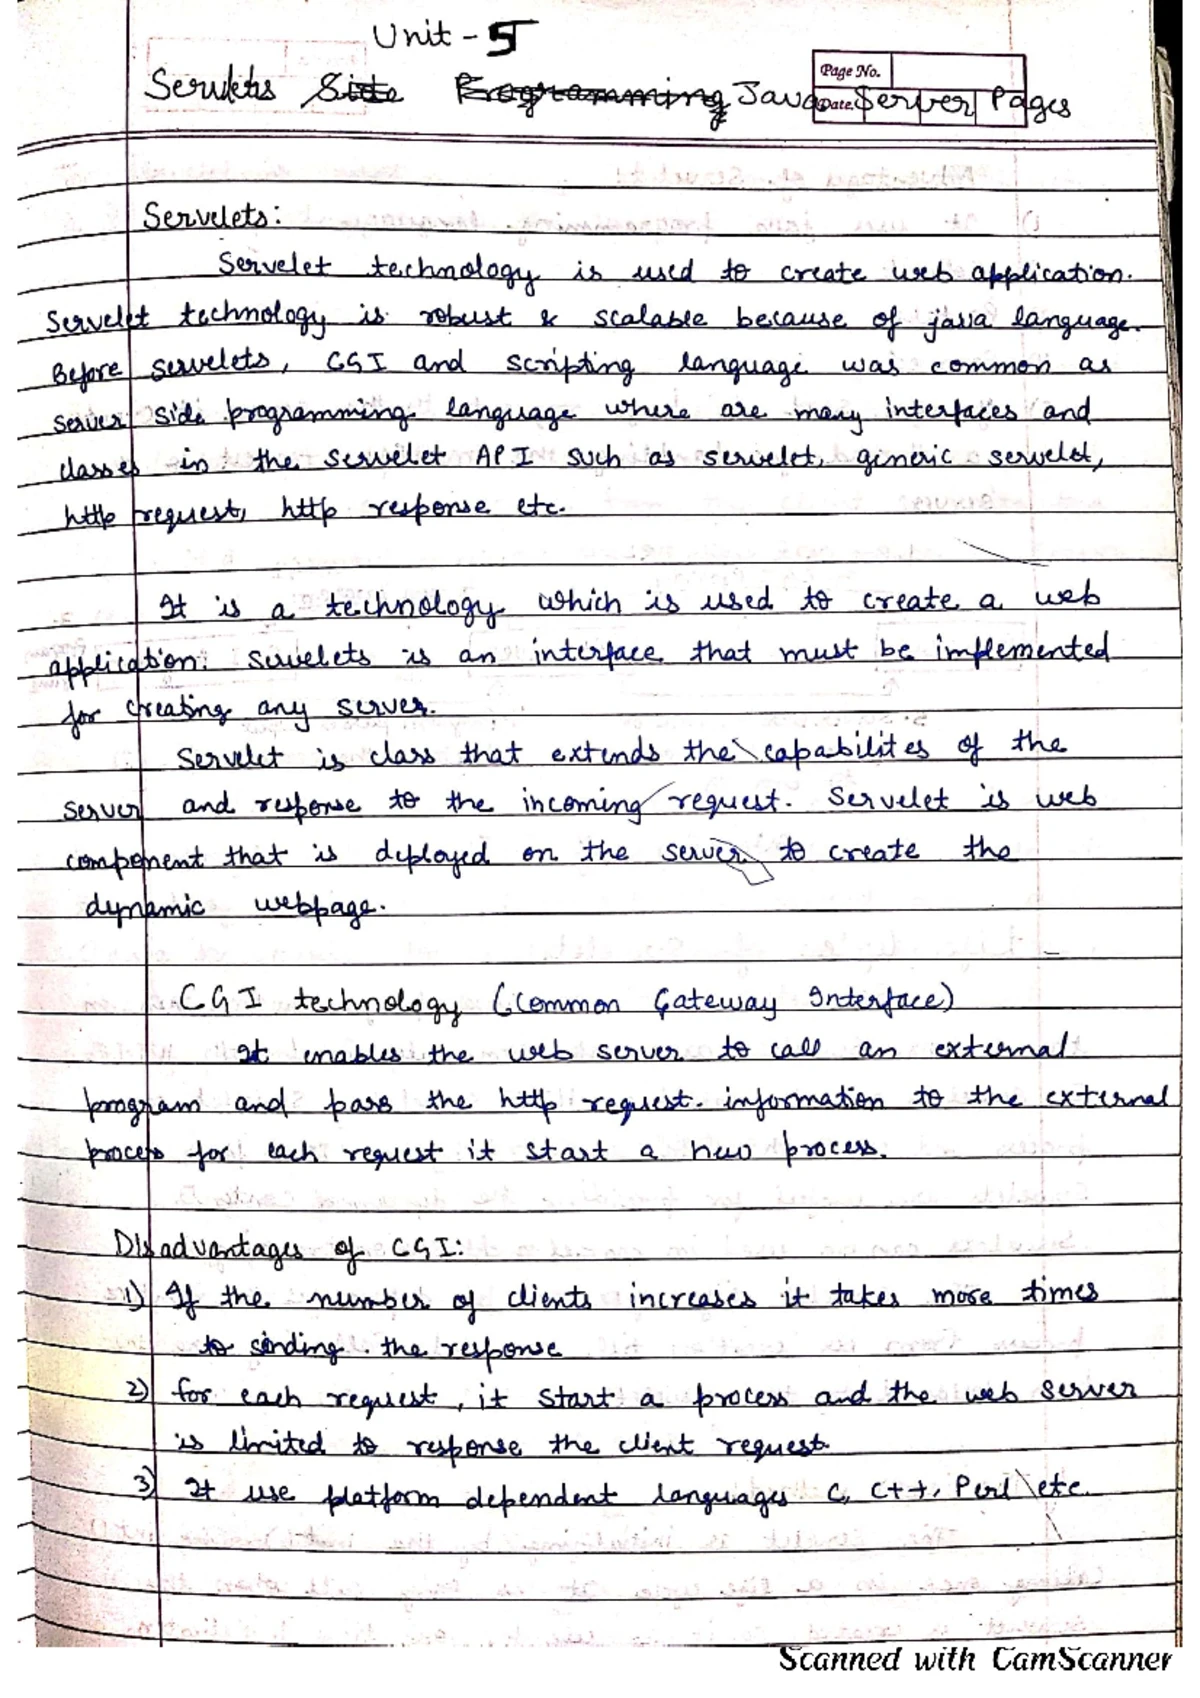 Unit - 5
Page No.
Servlets Side Programming Java Server Pages
Date.
Servelets:
Servelet technology is used to create web application.
Servelet technology is robust & scalable because of java language.
Before servelets, CGI and scripting language was common as
server side programming language where are many interfaces and
classes in the servelet API such as servelet, generic servelet,
http request, http response etc.
It is a technology which is used to create a web
application. Servelets is an interface that must be implemented
for creating any server.
Servelet is class that extends the capabilites of the
server and response to the incoming request. Servelet is web
component that is deployed on the server to create the
dynamic webpage.
CGI technology (Common Gateway Interface)
It enables the web server to call an external
program and pass the http request information to the external
process for each request it start a new process.
Disadvantages of CGI:
1) If the number of clients increases it takes more times
to sending the response
2) for each request, it start a process and the web server
is limited to response the client request
3) It use platform dependent languages C, C++, Perl etc.
Scanned with CamScanner